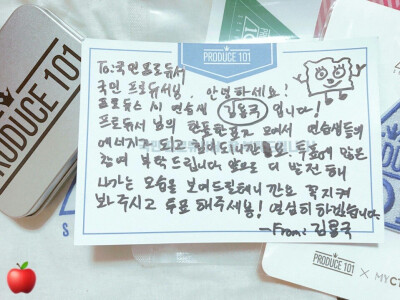 PRODUCE 101
PRODUCE 101
To: 국민 프로듀서
국민 프로듀서님, 안녕하세요!
프로듀스 시즌 연습생 김용국 입니다!
프로듀서 님의 한표한표가 모여서 연습생들의
에너지가 되고 힘이 되니깐요. 투표에 많은
참여 부탁드립니다. 앞으로 더 발전해
나가는 모습을 보여드릴테니깐요 꼭 지켜
봐주시고 투표 해주세용! 열심히 하겠습니다
-From: 김용국
PRODUCE 101 X MYCT